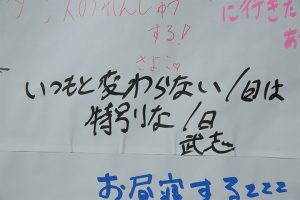 のれんしゅう
する!
さよこ
に行きた
あ
いつもと変わらない1日は
特別な1日
武志
お昼寝するzzz